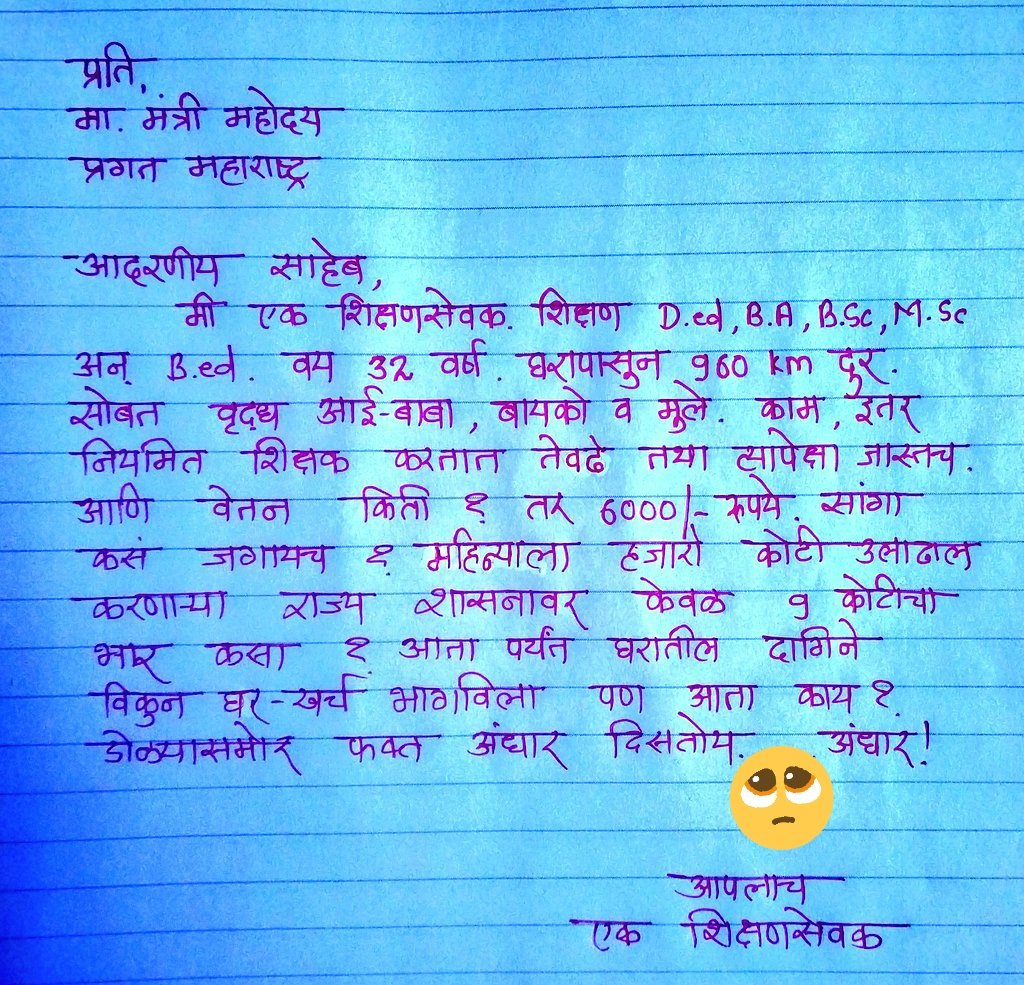 प्रति,
मा. मंत्री महोदय
प्रगत महाराष्ट्र
आदरणीय साहेब,
मी एक शिक्षणसेवक. शिक्षण D.ed, B.A, B.Sc, M.Sc
अन् B.ed. वय 32 वर्ष. घरापासुन ९६० km दुर.
सोबत वृद्ध आई-बाबा, बायको व मुले. काम, इतर
नियमित शिक्षक करतात तेवढे तथा त्यापेक्षा जास्तच.
आणि वेतन किती ? तर 6000/- रुपये. सांगा
कसं जगायच ? महिन्याला हजारो कोटी उलाढाल
करणाऱ्या राज्य शासनावर केवळ ९ कोटीचा
भार कसा ? आता पर्यंत घरातील दागिने
विकुन घर-खर्च भागविला पण आता काय ?
डोळ्यासमोर फक्त अंधार दिसतोय. . . अंधार!
आपलाच
एक शिक्षणसेवक